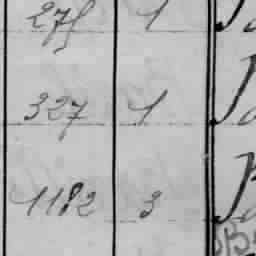 275 1
327 1
1182 3